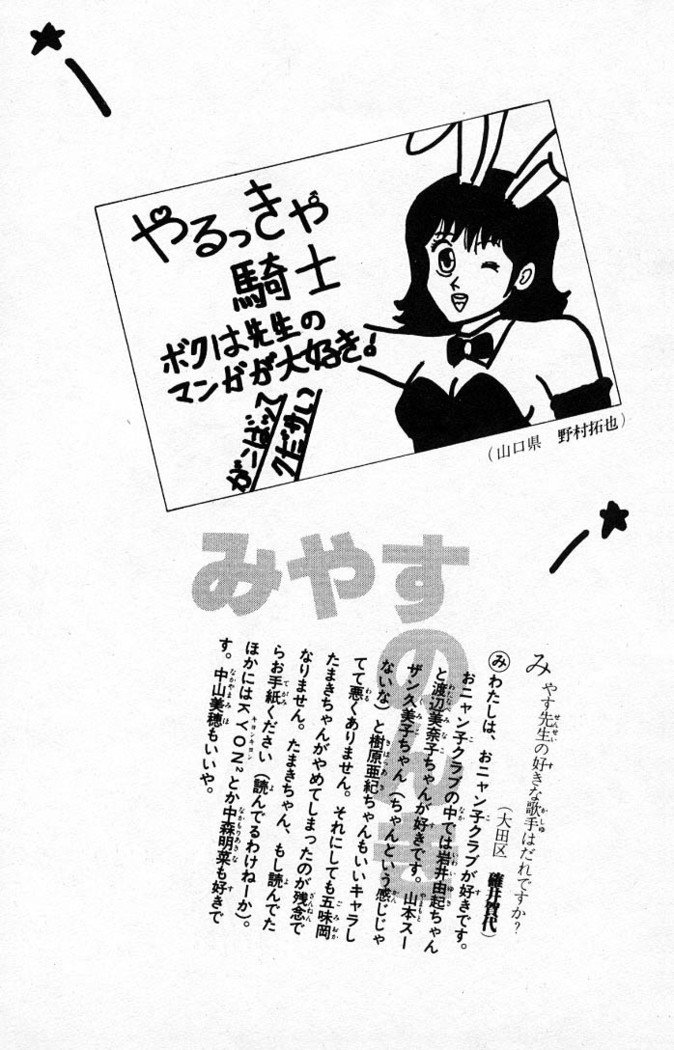 やるっきゃ
騎士
ボクは先生の
マンガが大好き!
がんばッて
クださい
(山口県 野村拓也)
みやす
のんき
みやす先生の好きな歌手はだれですか?
(大田区 智代)
み わたしは、おニャン子クラブが好きです。
おニャン子クラブの中では岩井由起ちゃん
と渡辺美奈子ちゃんが好きです。山本スー
ザン久美子ちゃん(ちゃんという感じじゃ
ないな)と樹原亜紀ちゃんもいいキャラし
てて悪くありません。それにしても五味岡
たまきちゃんがやめてしまったのが残念で
なりません。たまきちゃん、もし読んでた
らお手紙ください(読んでるわけねーか)。
ほかにはKYON²とか中森明菜も好きで
す。中山美穂もいいや。